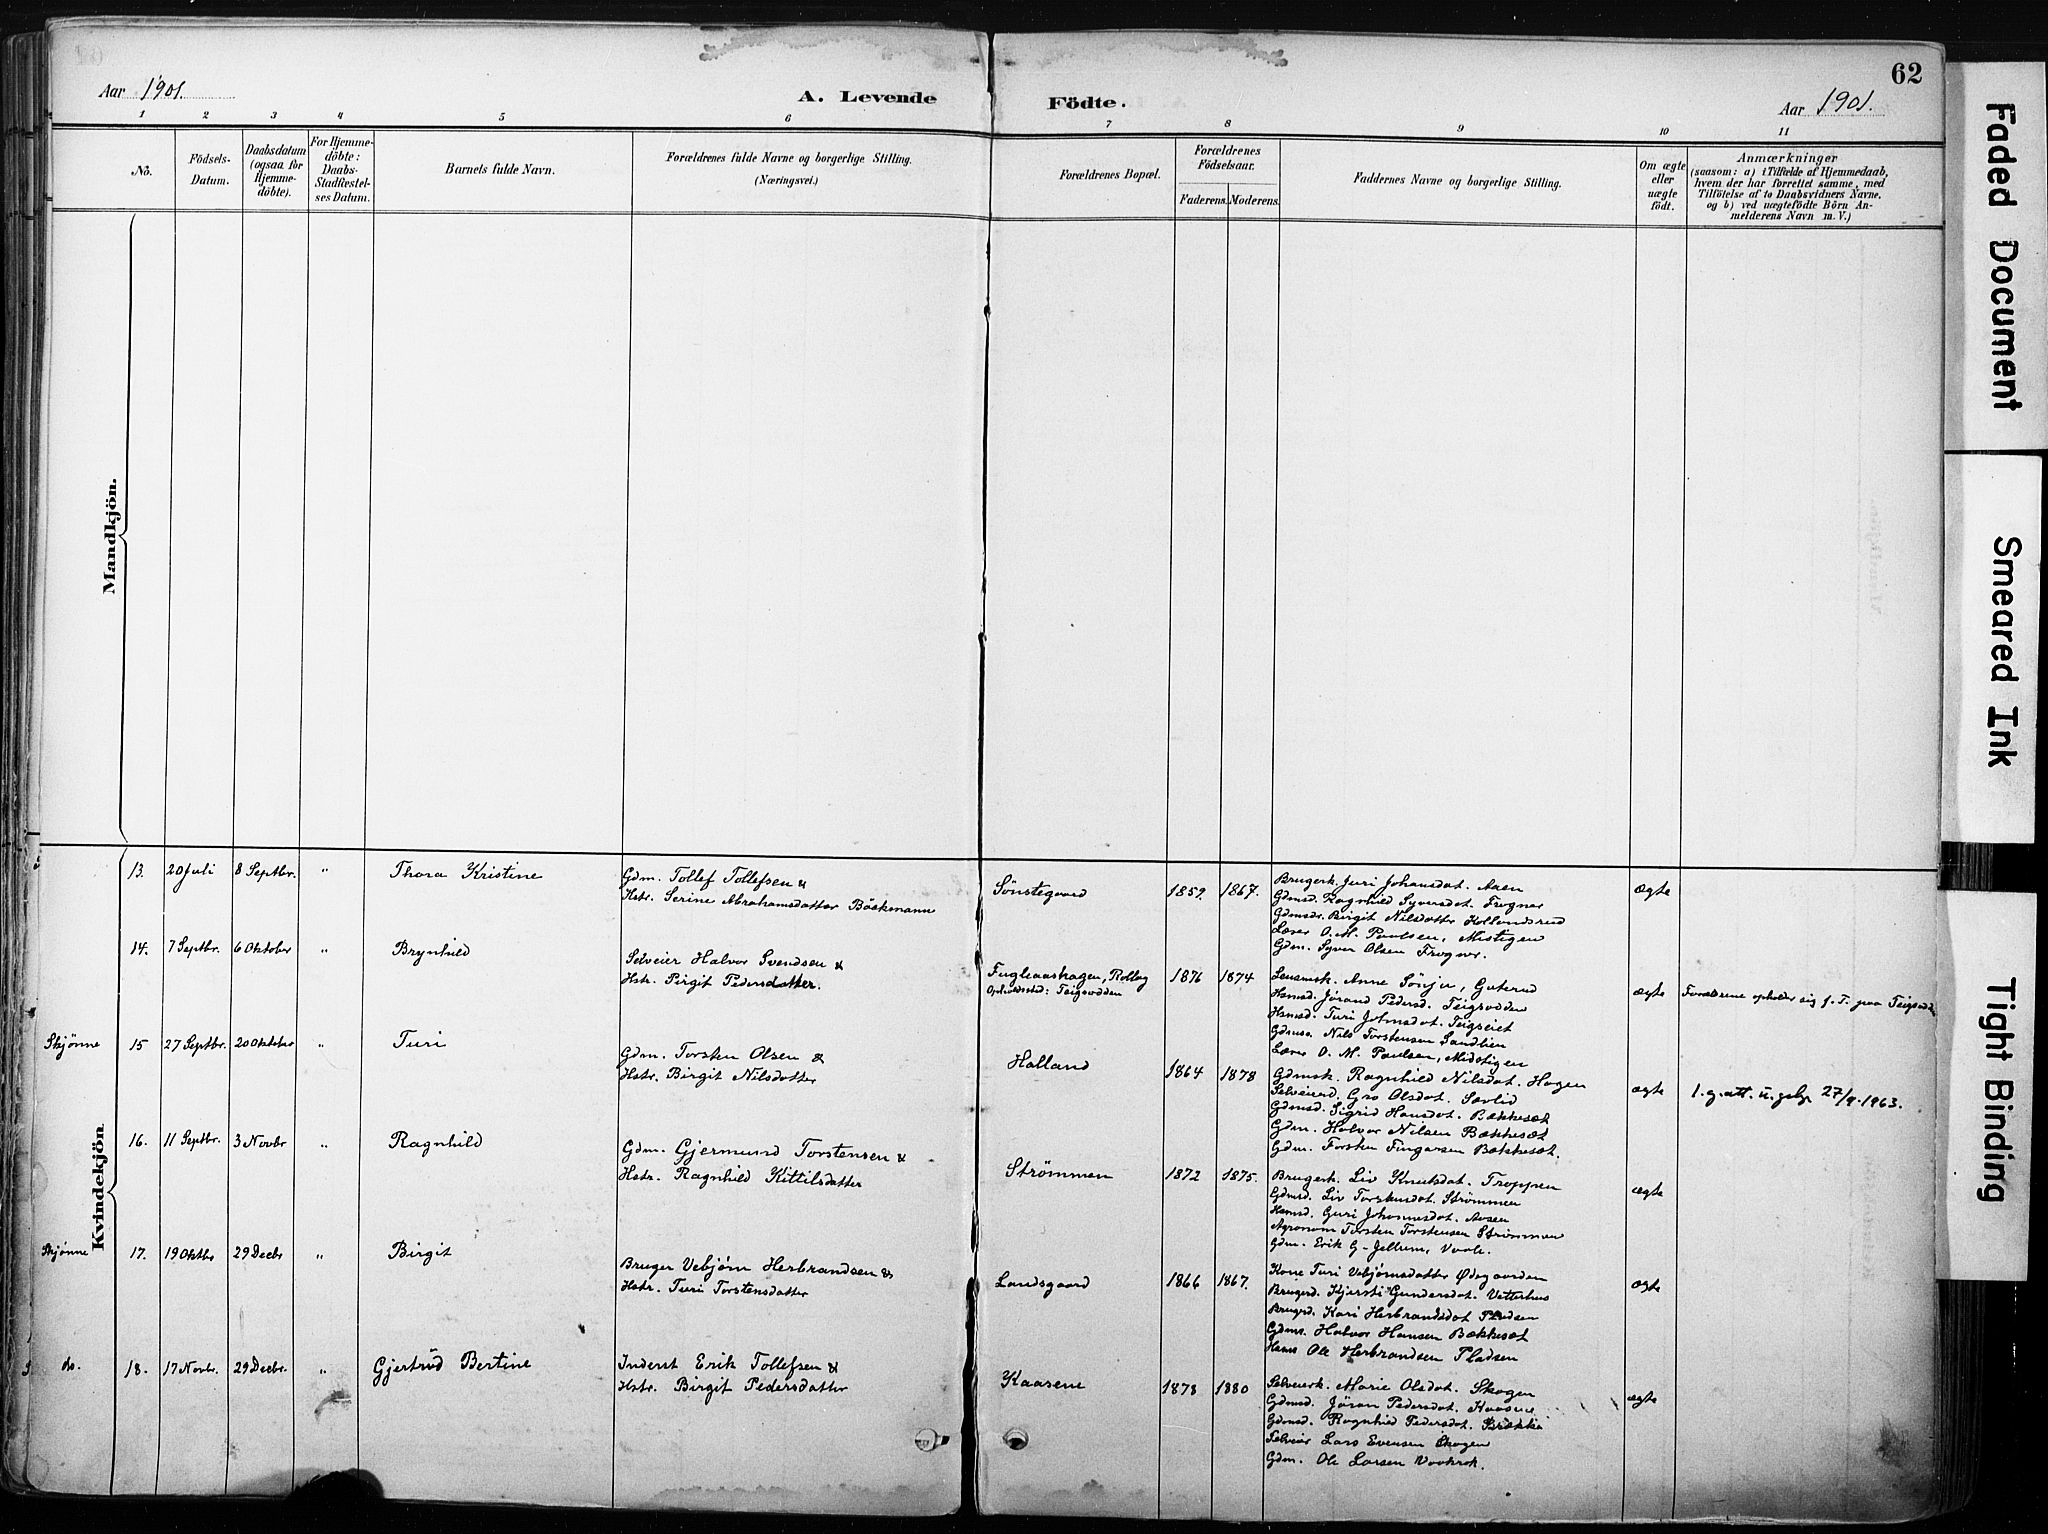 62
Aar 1901.
A. Levende Födte.
Aar 1901.
1 2 3 4 5 6 7 8 9 10 11
No.
Födsels-Datum.
Daabsdatum (ogsaa for Hjemme-döbte).
For Hjemme-döbte: Daabs-Stadfæstel-ses Datum.
Barnets fulde Navn.
Forældrenes fulde Navne og borgerlige Stilling.
(Næringsvei.)
Forældrenes Bopæl.
Forældrenes Födselsaar.
Faderens. Moderens.
Faddernes Navne og borgerlige Stilling.
Om ægte eller uægte födt.
Anmærkninger
(saasom: a) i Tilfælde af Hjemmedaab,
hvem der har forrettet samme, med
Tilföielse af to Daabsvidners Navne,
og b) ved uægtefödte Börn An-
melderens Navn m. V.)
Mandkjön.
Kvindekjön.
13. 20 Juli 8 Septbr. " Thora Kristine
Gdm. Tollef Tollefsen &
Hstr. Serine Abrahamsdatter Böckmann
Sønstegaard 1859. 1867.
Brugerk. Juri Johansdat. Aasen
Gdmsd. Ragnhild Syversdat. Frogner
Gdmsdr. Birgit Nilsdatter Hollandsrud
Lærer O. M. Paulsen, Midstigen
Gdm. Syver Olsen Frogner.
ægte
14. 7 Septbr. 6 Oktober " Brynhild
Selveier Halvor Svendsen &
Hstr. Birgit Pedersdatter.
Fugleaashagen, Rollag
Opholdssted: Teigsodden
1876 1874
Lensmsk. Anne Sønju, Guterud
Hsmsd. Jørand Pedersd. Teigsodden
Hsmsd. Turi Johnsdat. Teigseiet
Gdmss. Nils Torstensen Sandlien
Lærer O. M. Paulsen, Midstigen
ægte
Forældrene opholder sig f. T. paa Teigsodd.
Skjønne 15 27 Septbr. 20 Oktober " Turi
Gdm. Torsten Olsen &
Hstr. Birgit Nilsdatter
Halland 1864 1878
Gdmsk. Ragnhild Nilsdat. Hagen
Selveierd. Gro Olsdat. Sævlid
Gdmsd. Sigrid Hansdat. Bækkesæt
Gdm. Halvor Nilsen Bækkesæt
Gdm. Torsten Fingarsen Bækkesæt.
ægte
1. g. att. u. gebyr 27/9.1963.
16. 11 Septbr. 3 Novbr " Ragnhild
Gdm. Gjermund Torstensen &
Hstr. Ragnhild Kittilsdatter
Strømmen 1872 1875.
Brugerk. Liv Knutsdat. Troppen
Gdmsd. Liv Torstensdat. Strømmen
Hsmsd. Guri Johannesdat. Aasen
Agronom Torsten Torstensen Strømmen
Gdm. Erik G. Jellum,
ægte
Skjønne 17. 19 Oktbr 29 Decbr " Birgit
Bruger Vebjørn Herbrandsen &
Hstr. Turi Torstensdatter
Landsgaard 1866 1867.
Kone Turi Vebjørnsdatter Ødegaarden
Brugerd. Kjersti Gundersdat. Vetterhus
Brugsd. Kari Herbrandsdat Pladsen
Gdms. Halvor Hansen Bækkesæt
Hsms Ole Herbrandsen Pladsen
ægte
do. 18. 17 Novbr. 29 Decbr. " Gjertrud Bertine
Inderst Erik Tollefsen &
Hstr. Birgit Pedersdatter
Kaasene 1878 1880
Selveierk. Marie Olsdat. Skogen
Gdmsd. Jøran Pedersdat. Kaasene
Gdmsd. Ragnhild Pedersdat. Brække
Selveier Lars Evensen Skogen
Gdm. Ole Larsen
ægte
Faded Document
Smeared Ink
Tight Binding